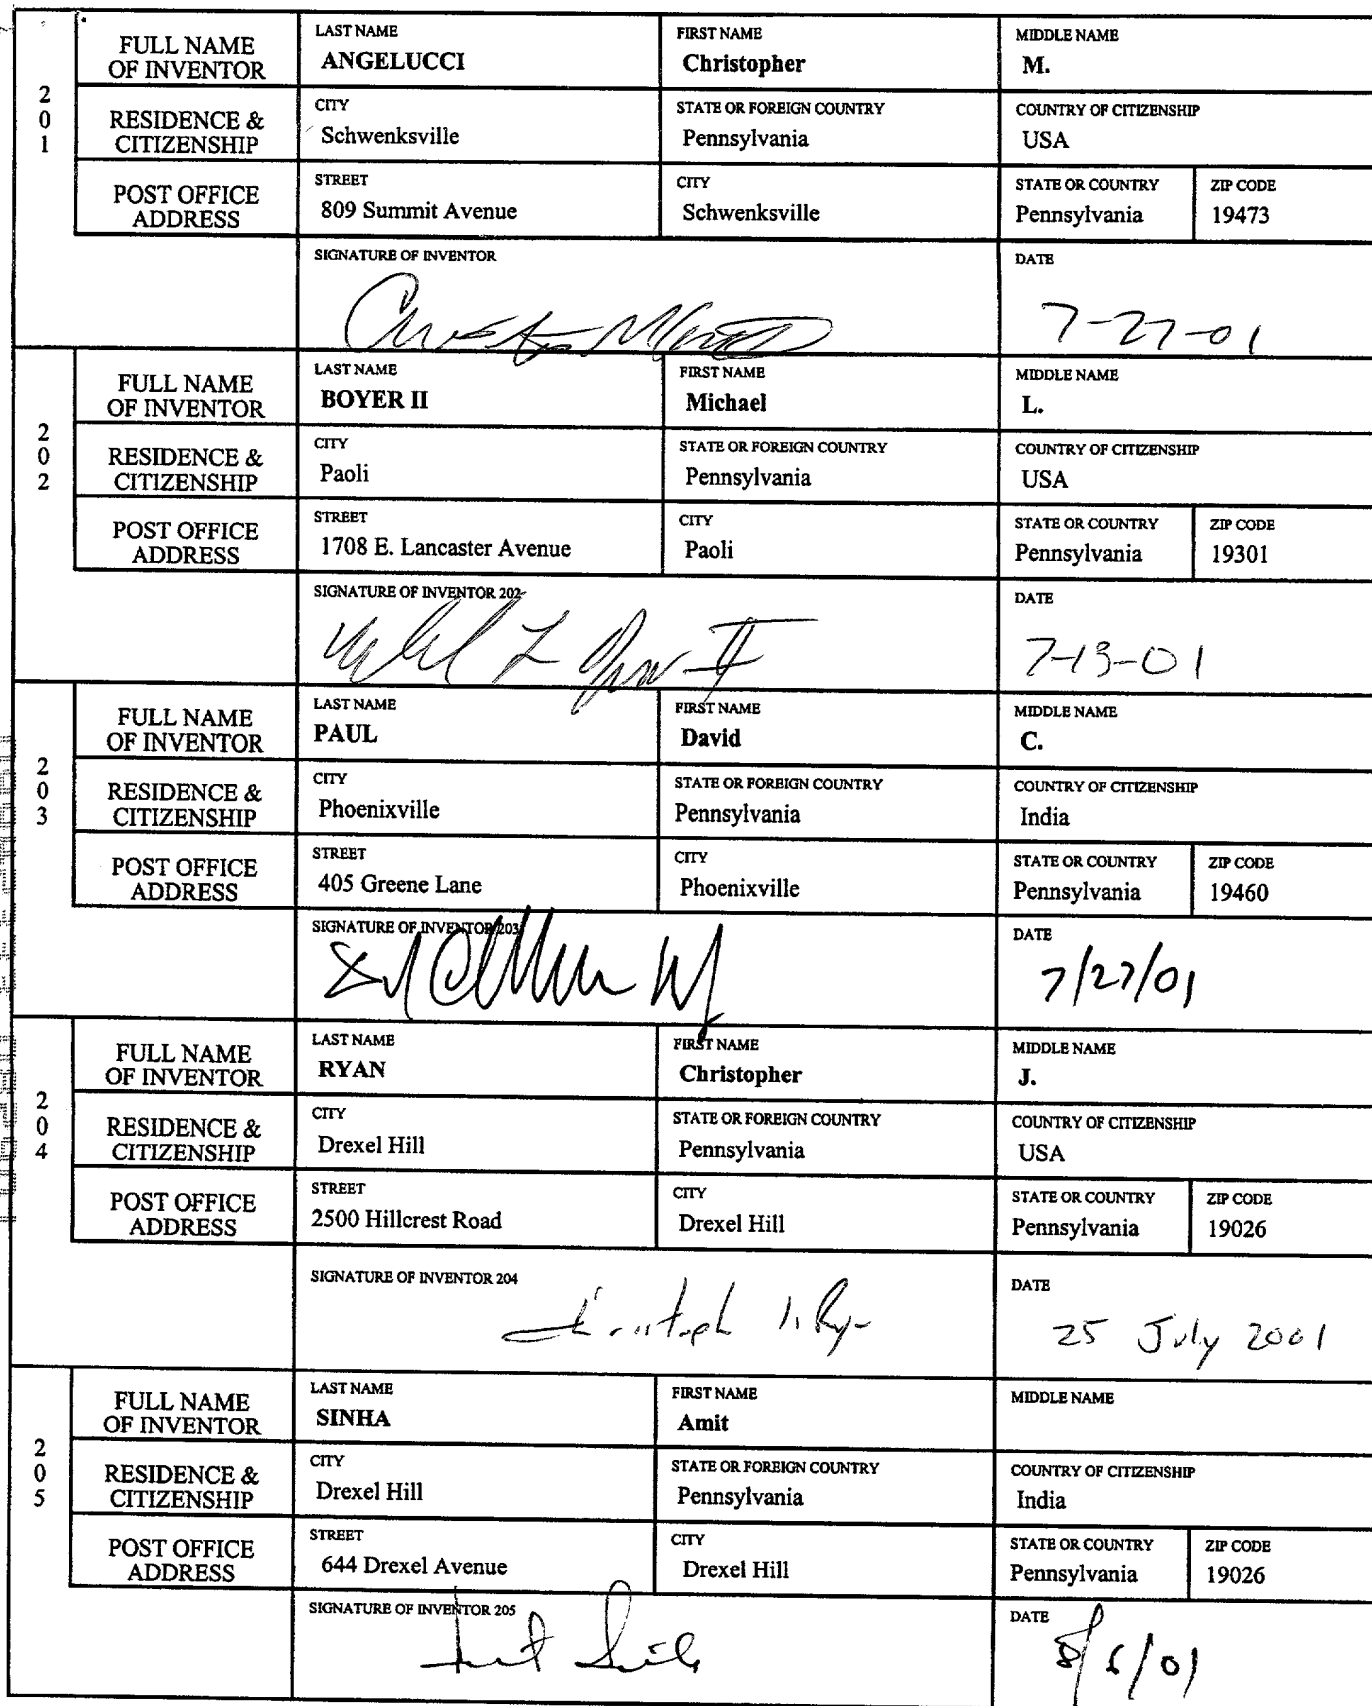 FULL NAME OF INVENTOR
LAST NAME
ANGELUCCI
FIRST NAME
Christopher
MIDDLE NAME
M.
201
RESIDENCE & CITIZENSHIP
CITY
Schwenksville
STATE OR FOREIGN COUNTRY
Pennsylvania
COUNTRY OF CITIZENSHIP
USA
POST OFFICE ADDRESS
STREET
809 Summit Avenue
CITY
Schwenksville
STATE OR COUNTRY
Pennsylvania
ZIP CODE
19473
SIGNATURE OF INVENTOR
DATE
7-27-01
FULL NAME OF INVENTOR
LAST NAME
BOYER II
FIRST NAME
Michael
MIDDLE NAME
L.
202
RESIDENCE & CITIZENSHIP
CITY
Paoli
STATE OR FOREIGN COUNTRY
Pennsylvania
COUNTRY OF CITIZENSHIP
USA
POST OFFICE ADDRESS
STREET
1708 E. Lancaster Avenue
CITY
Paoli
STATE OR COUNTRY
Pennsylvania
ZIP CODE
19301
SIGNATURE OF INVENTOR 202
DATE
7-13-01
FULL NAME OF INVENTOR
LAST NAME
PAUL
FIRST NAME
David
MIDDLE NAME
C.
203
RESIDENCE & CITIZENSHIP
CITY
Phoenixville
STATE OR FOREIGN COUNTRY
Pennsylvania
COUNTRY OF CITIZENSHIP
India
POST OFFICE ADDRESS
STREET
405 Greene Lane
CITY
Phoenixville
STATE OR COUNTRY
Pennsylvania
ZIP CODE
19460
SIGNATURE OF INVENTOR 203
DATE
7/27/01
FULL NAME OF INVENTOR
LAST NAME
RYAN
FIRST NAME
Christopher
MIDDLE NAME
J.
204
RESIDENCE & CITIZENSHIP
CITY
Drexel Hill
STATE OR FOREIGN COUNTRY
Pennsylvania
COUNTRY OF CITIZENSHIP
USA
POST OFFICE ADDRESS
STREET
2500 Hillcrest Road
CITY
Drexel Hill
STATE OR COUNTRY
Pennsylvania
ZIP CODE
19026
SIGNATURE OF INVENTOR 204
DATE
25 July 2001
FULL NAME OF INVENTOR
LAST NAME
SINHA
FIRST NAME
Amit
MIDDLE NAME
205
RESIDENCE & CITIZENSHIP
CITY
Drexel Hill
STATE OR FOREIGN COUNTRY
Pennsylvania
COUNTRY OF CITIZENSHIP
India
POST OFFICE ADDRESS
STREET
644 Drexel Avenue
CITY
Drexel Hill
STATE OR COUNTRY
Pennsylvania
ZIP CODE
19026
SIGNATURE OF INVENTOR 205
DATE
8/6/01